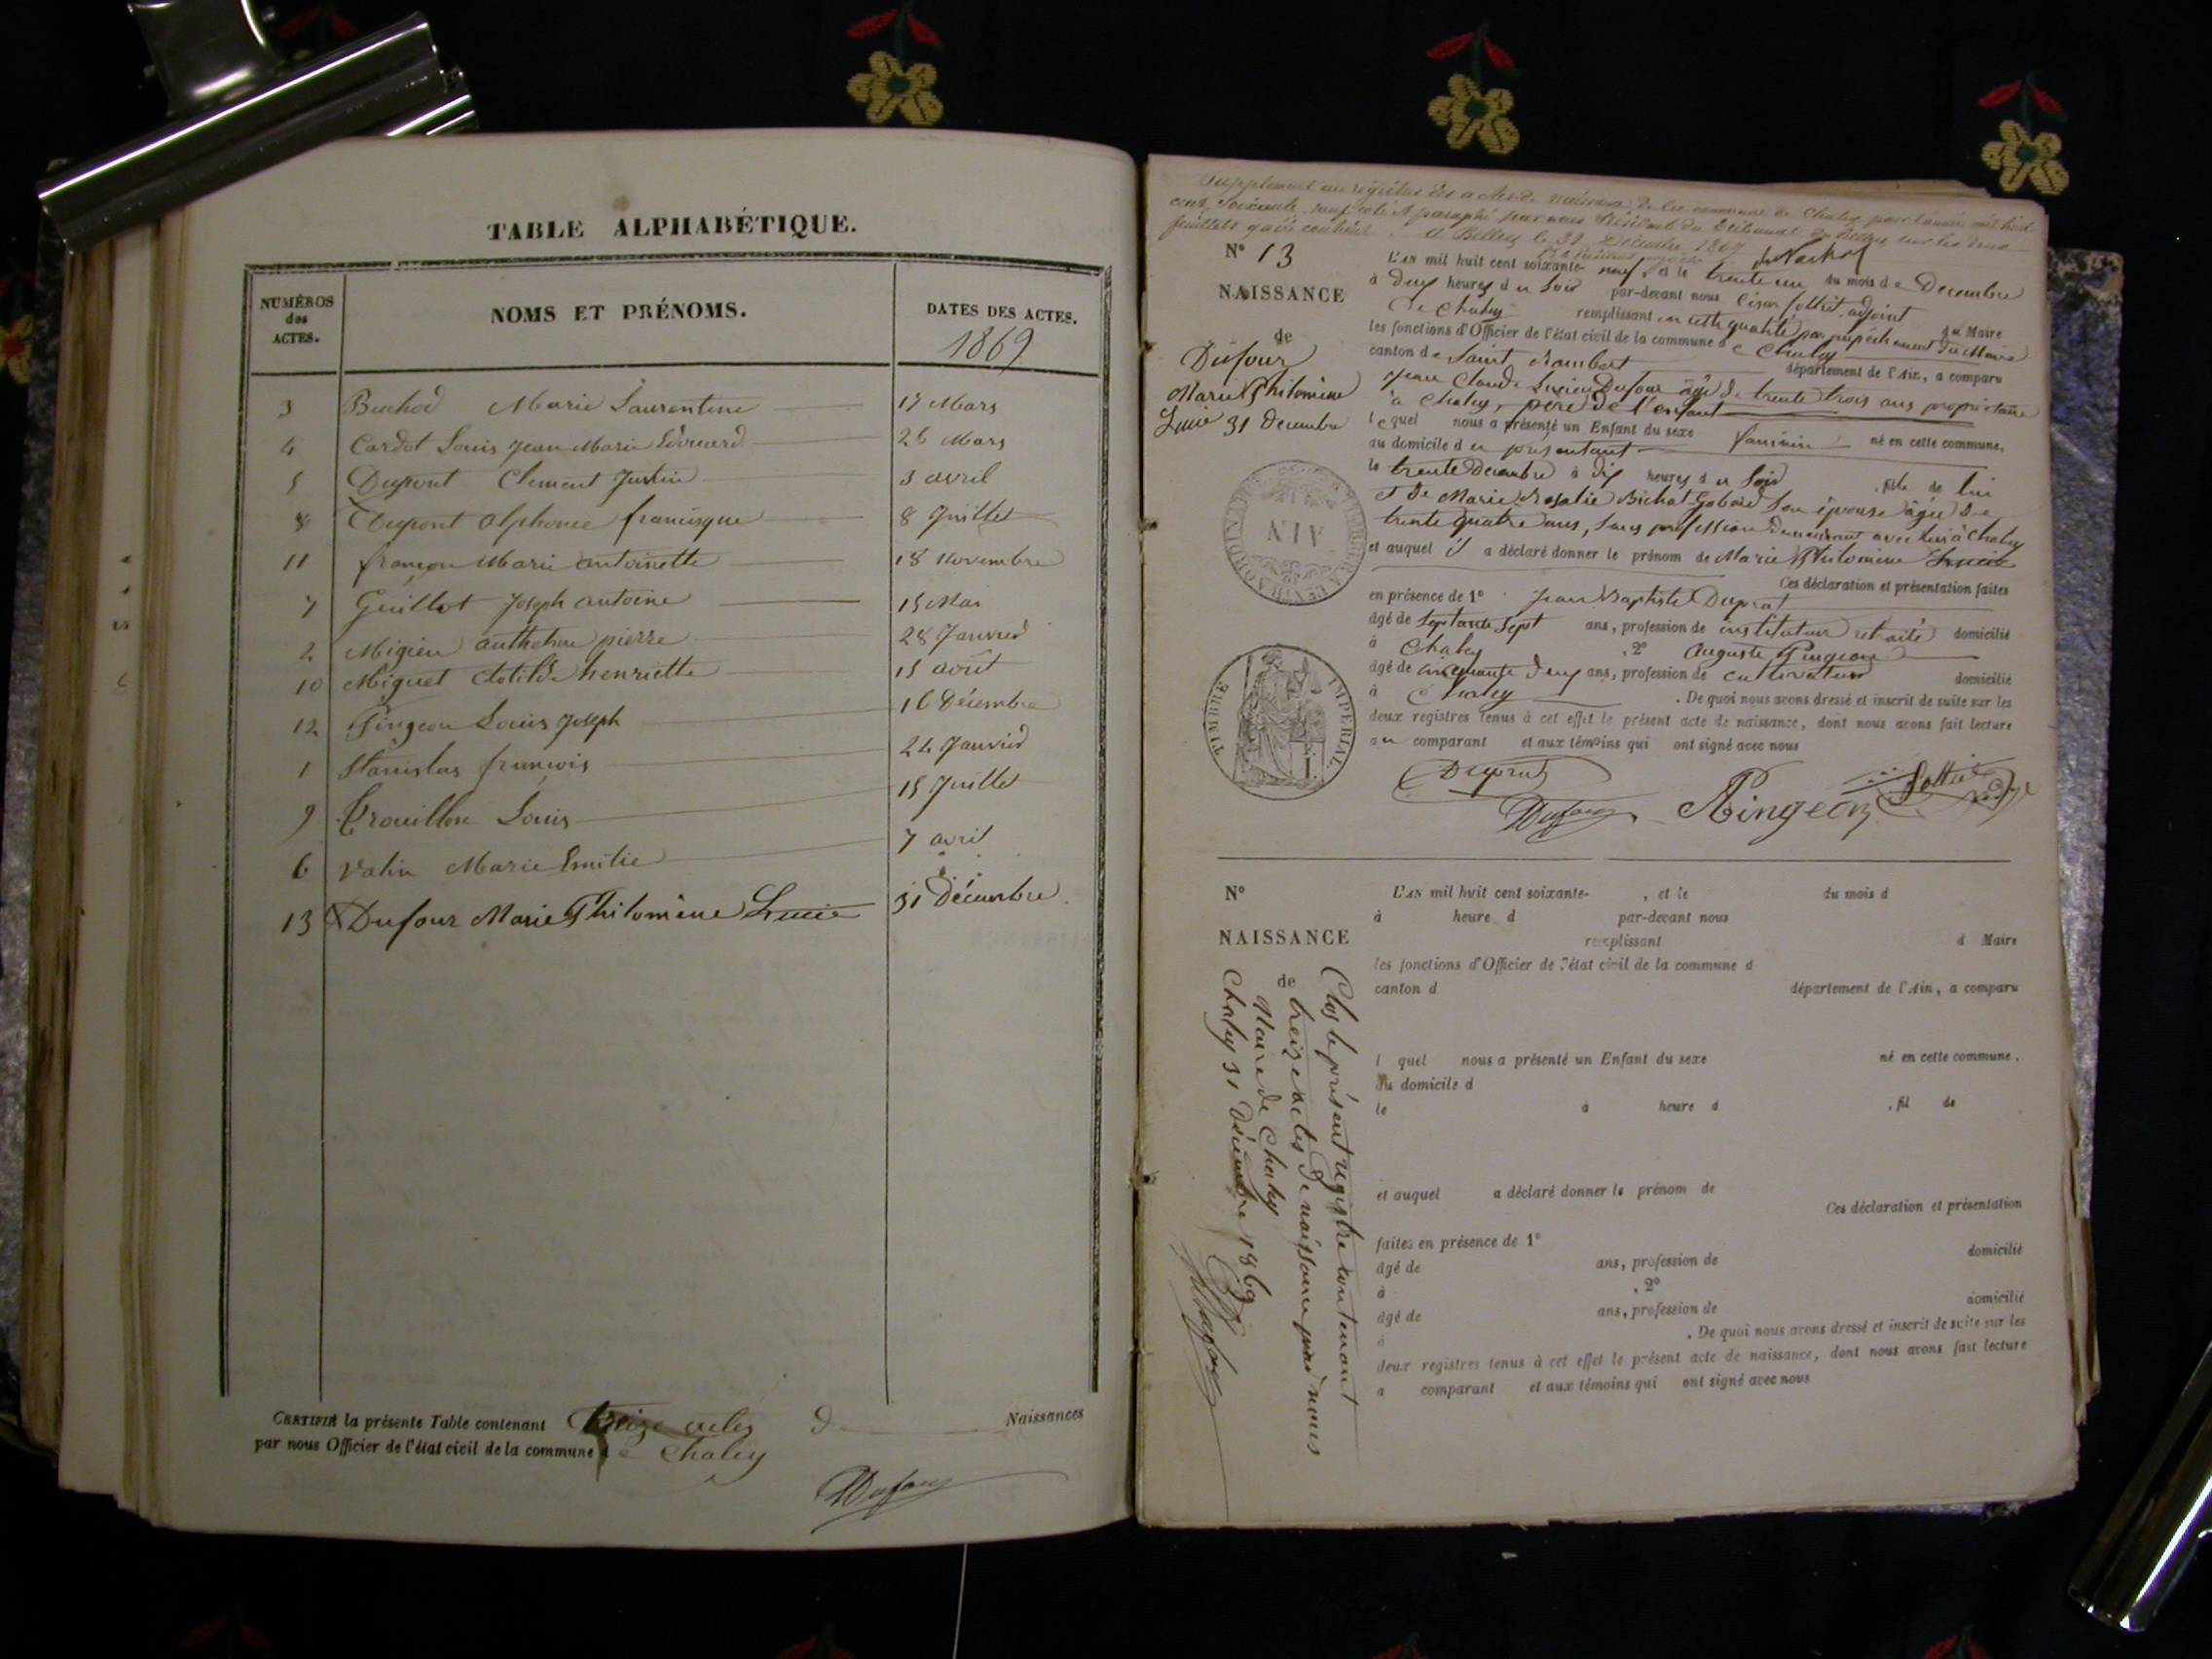 TABLE ALPHABÉTIQUE.
NUMÉROS des ACTES.
NOMS ET PRÉNOMS.
DATES DES ACTES.
1869
3 Buchod Marie Laurentine 17 Mars
4 Cardot Louis Jean Marie Edouard 26 Mars
5 Dupont Clement Justin 3 avril
8 Dupont alphonse francisque 8 Juillet
11 françon Marie antoinette 18 Novembre
7 Guillot Joseph antoine 15 Mai
2 Migieu anthelme pierre 28 Janvier
10 Miguet Clotilde henriette 15 août
12 Pingeon Louis Joseph 16 Décembre
1 Stanislas françois 24 Janvier
9 Trouillon Louis 15 Juillet
6 Valin Marie Emilie 7 avril
13 Dufour Marie Philomène Lucie 31 Décembre
CERTIFIÉ la présente Table contenant treize actes d Naissances
par nous Officier de l'état civil de la commune de Chaley
Dufour
Supplément au registre des actes de naissance de la commune de Chaley pour l'année mil huit
cent soixante neuf coté et paraphé par nous Président du tribunal de Belley sur les deux
feuillets qu'il contient. A Belley le 31 Décembre 1869
N° 13
NAISSANCE
de
Dufour
Marie Philomène
Lucie 31 Décembre
L'AN mil huit cent soixante-neuf, et le trente un du mois de Décembre
à Deux heures du Soir par-devant nous César Jolliet, adjoint
de Chaley remplissant en cette qualité par empêchement du Maire du Maire
les fonctions d'Officier de l'état civil de la commune de Chaley
canton de Saint Rambert département de l'Ain, a comparu
Jean Claude Lucien Dufour âgé de trente trois ans propriétaire
à Chaley, père de l'enfant
lequel nous a présenté un Enfant du sexe féminin né en cette commune.
au domicile du présentant
le trente Décembre à dix heures du Soir, fille de lui
et de Marie Rosalie Bichat Gobard son épouse âgée de
trente quatre ans, sans profession demeurant avec lui à Chaley
et auquel il a déclaré donner le prénom de Marie Philomène Lucie
Ces déclaration et présentation faites
en présence de 1° Jean Baptiste Duprat
âgé de Septante Sept ans, profession de instituteur retraité domicilié
à Chaley, 2° Auguste Pingeon
âgé de cinquante deux ans, profession de cultivateur domicilié
à Chaley. De quoi nous avons dressé et inscrit de suite sur les
deux registres tenus à cet effet le présent acte de naissance, dont nous avons fait lecture
au comparant et aux témoins qui ont signé avec nous
Duprat
Dufour
Pingeon
AIN
TIMBRE IMPÉRIAL
N°
NAISSANCE
de
L'AN mil huit cent soixante- , et le du mois d
à heure d par-devant nous
remplissant d Maire
les fonctions d'Officier de l'état civil de la commune d
canton d département de l'Ain, a comparu
l quel nous a présenté un Enfant du sexe né en cette commune.
au domicile d
le à heure d , fil de
et auquel a déclaré donner le prénom de
Ces déclaration et présentation
faites en présence de 1°
âgé de ans, profession de domicilié
à , 2°
âgé de ans, profession de domicilié
à . De quoi nous avons dressé et inscrit de suite sur les
deux registres tenus à cet effet le présent acte de naissance, dont nous avons fait lecture
a comparant et aux témoins qui ont signé avec nous
Clos le présent registre contenant
treize actes de naissance par nous
Maire de Chaley
Chaley 31 Décembre 1869